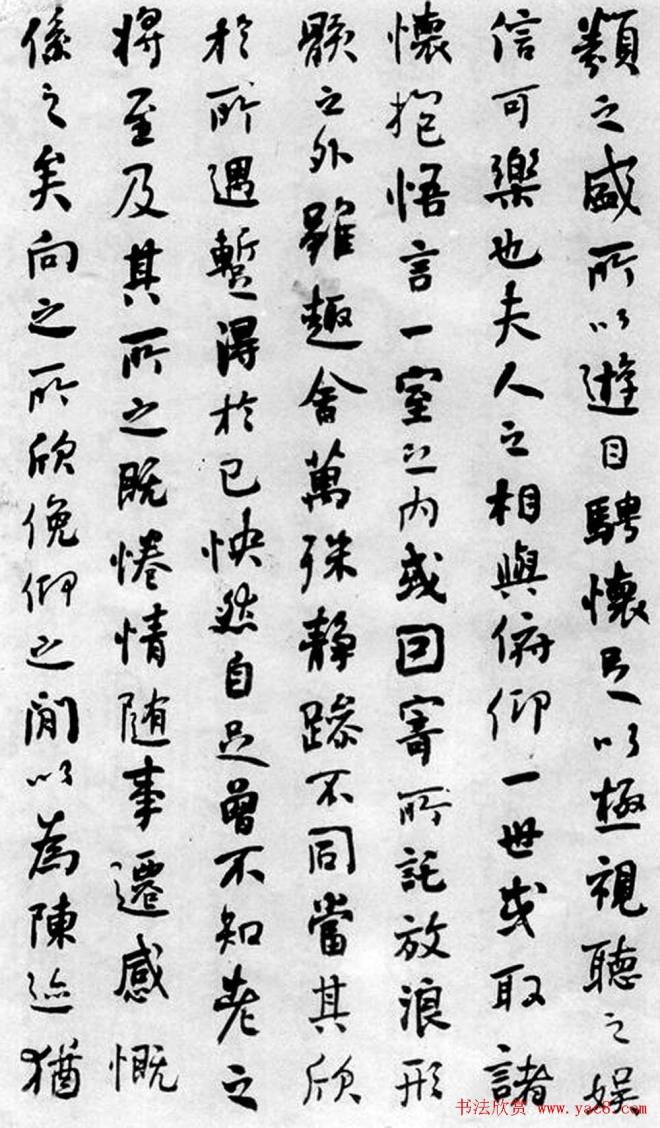 類之盛所以遊目騁懷足以極視聽之娛
信可樂也夫人之相與俯仰一世或取諸
懷抱悟言一室之內或因寄所託放浪形
骸之外雖趣舍萬殊靜躁不同當其欣
於所遇暫得於己怏然自足曾不知老之
將至及其所之既惓情隨事遷感慨
係之矣向之所欣俛仰之閒以為陳迹猶
书法欣赏 www.yac8.com